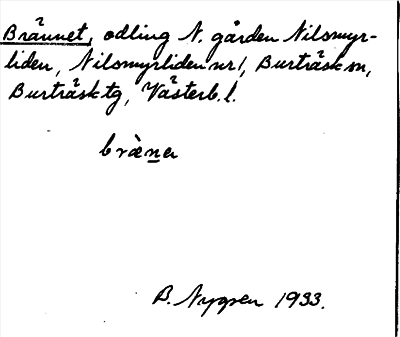 Brännet, odling N. gården Nilsmyr-
liden, Nilsmyrliden nr 1, Burträsk sn,
Burträsk tg, Västerb. l.
bræ̀na
1933.